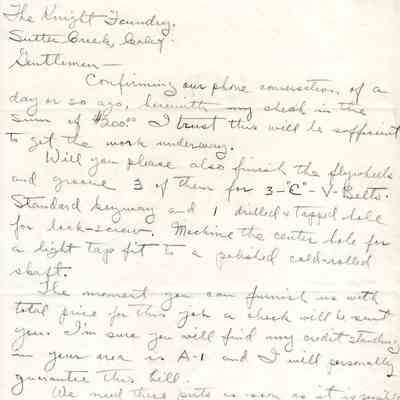 The Knight Foundry.
Sutter Creek, Calif.
Gentlemen—
Confirming our phone conversation of a
day or so ago, herewith my check in the
sum of $200.00 I trust this will be sufficient
to get the work underway.
Will you please also finish the flywheels
and groove 3 of them for 3-"C"-V-Belts.
Standard keyway and 1 drilled & tapped hole
for lock-screw. Machine the center hole for
a light tap fit to a polished cold-rolled
shaft.
The moment you can furnish us with
total price for this job a check will be sent
you. I'm sure you will find my credit standing
in your area is A-1 and I will personally
guarantee this bill.
We need these parts as soon as it is possible